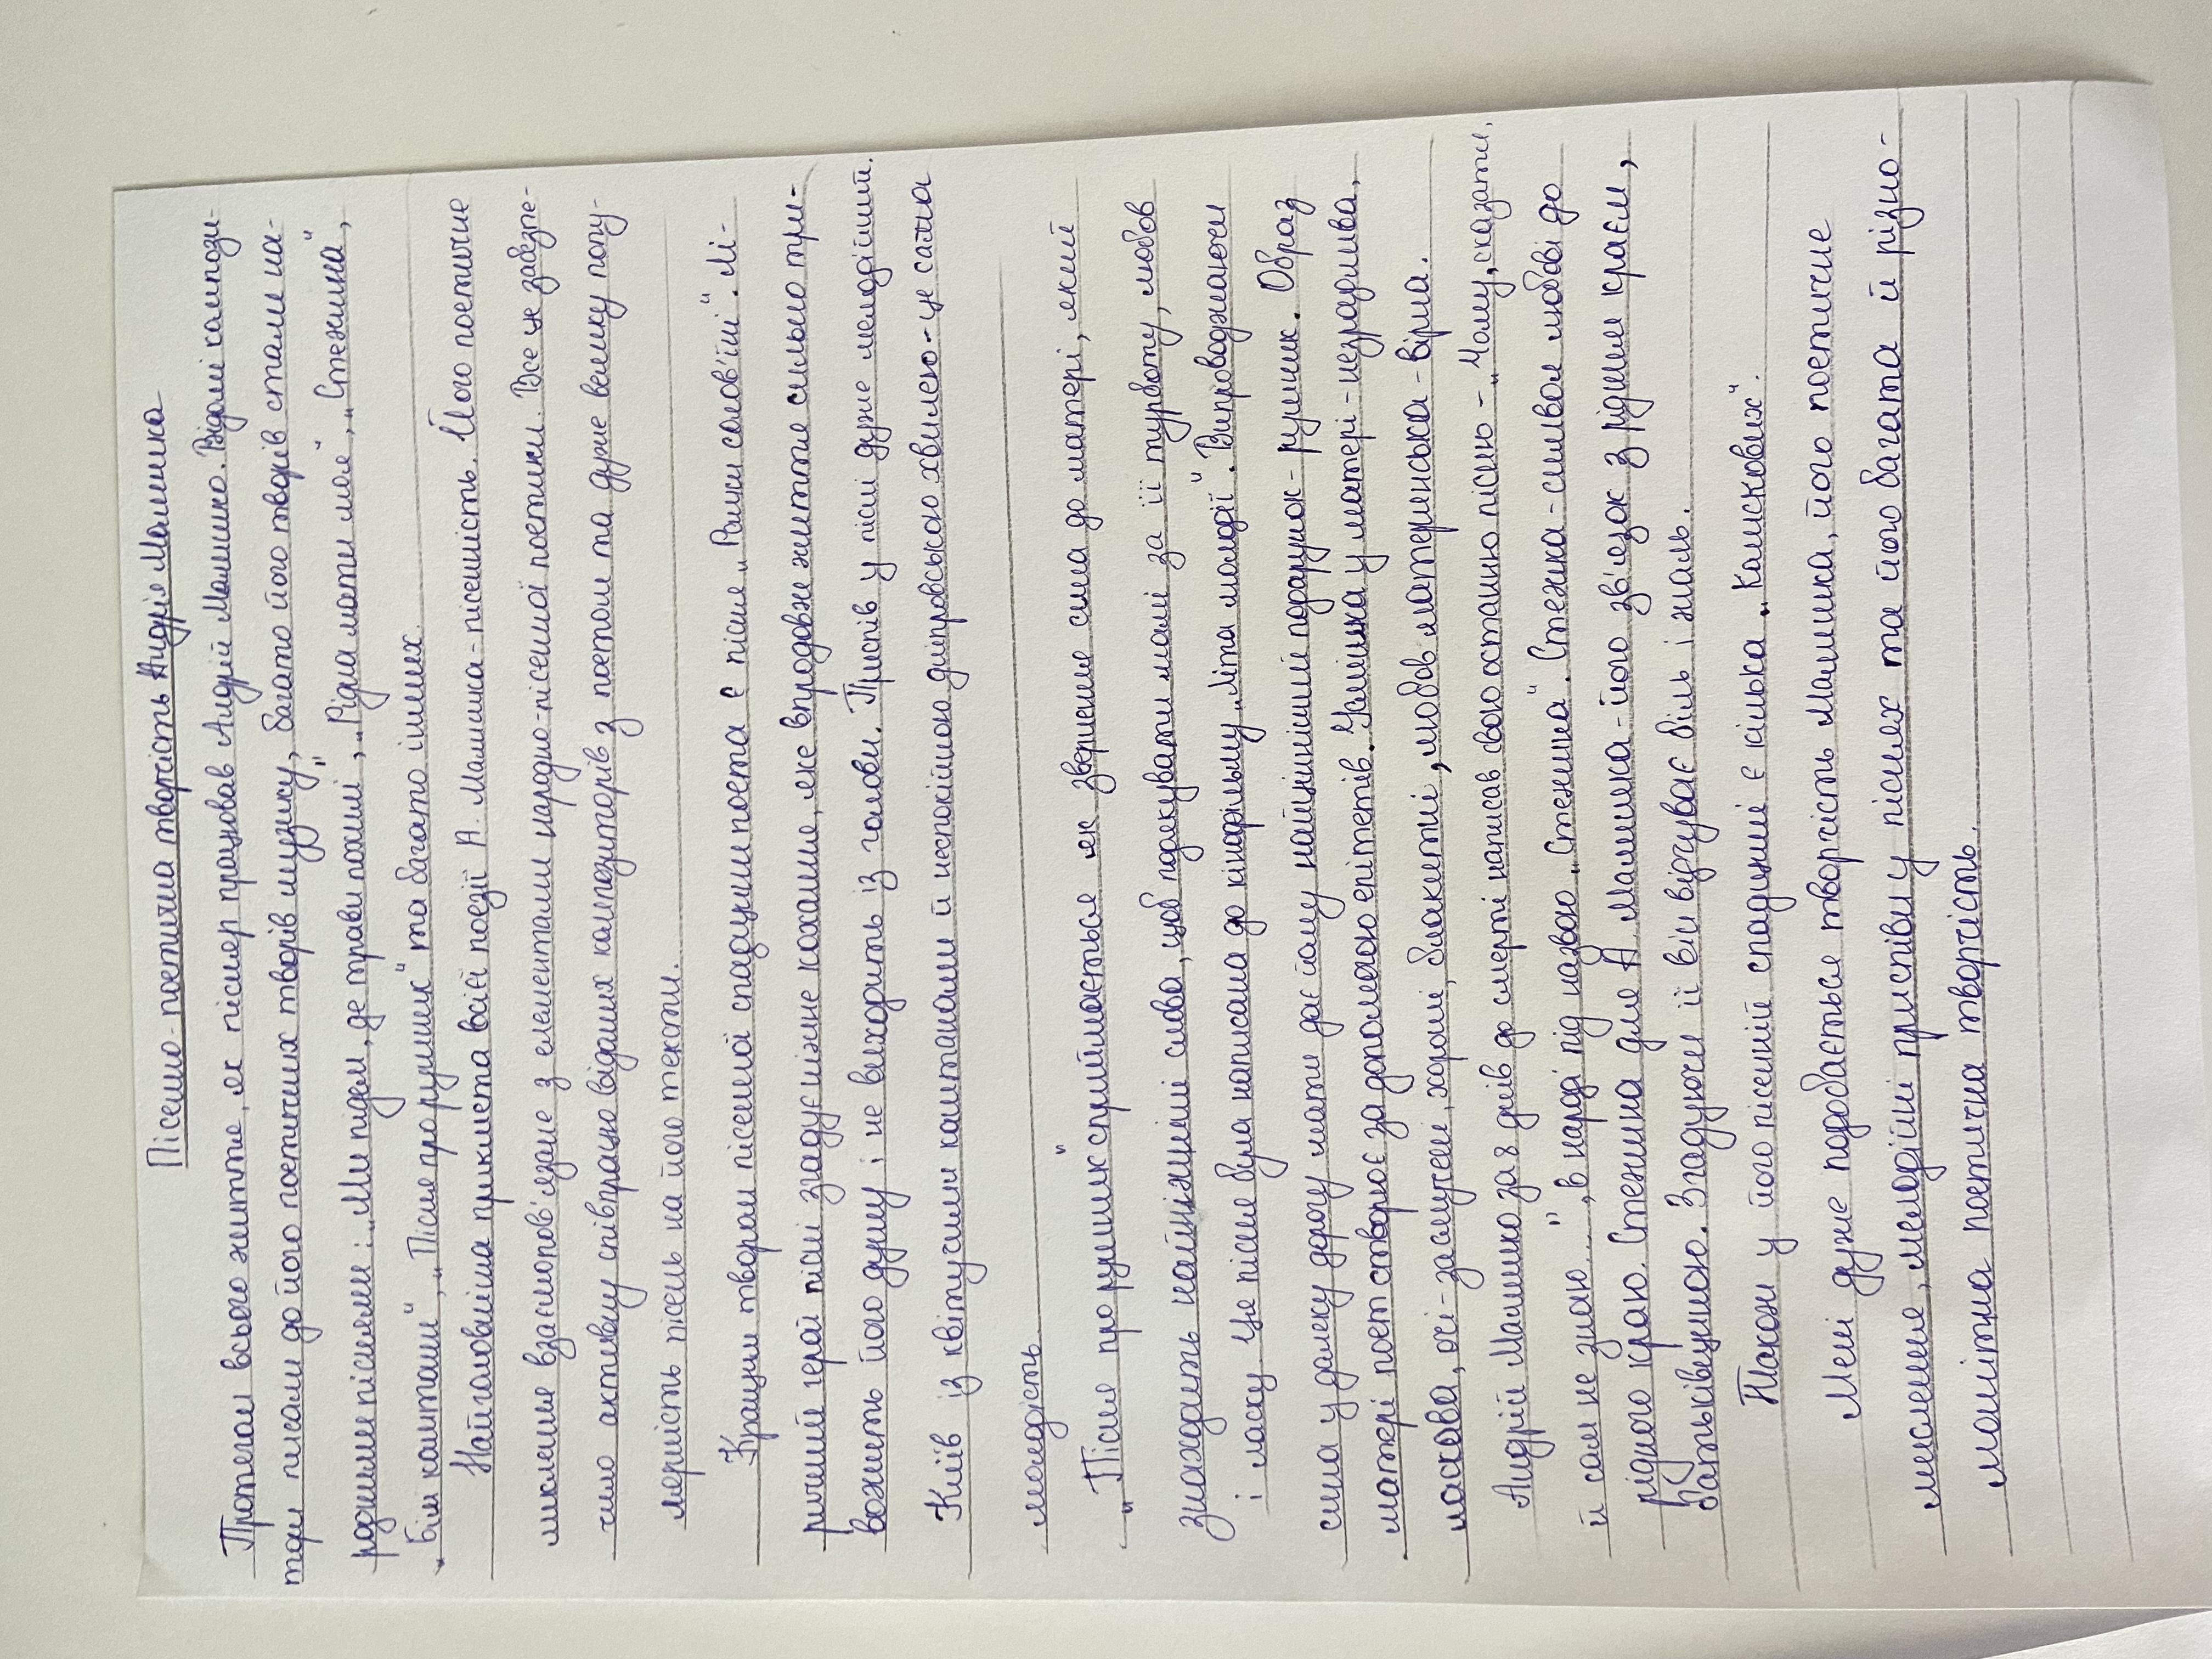 Пісенно-поетична творчість Андрія Малишка
Протягом всього життя, як пісняр працював Андрій Малишко. Відомі компози-
тори писали до його поетичних творів музику, багато його творів стали на-
родними піснями: „Ми підем, де трави похилі", „Рідна мати моя", „Стежина",
„Білі каштани", „Пісня про рушник" та багато інших.
Найголовніша прикмета всієї поезії А. Малишка-пісенність. Його поетичне
мислення взаємопов'язане з елементами народно-пісенної поетики. Все це забезпе-
чило активну співпрацю відомих композиторів з поетом та дуже велику попу-
лярність пісень на його тексти.
Кращим твором пісенної спадщини поета є пісня „Ранки солов'їні". Лі-
ричний герой пісні згадує ніжне кохання, яке впродовж життя сильно три-
вожить його душу і не виходить із голови. Приспів у пісні дуже мелодійний.
Київ із квітучими каштанами й неспокійною дніпровською хвилею-це сама
молодість.
„Пісня про рушник" сприймається як звернення сина до матері, який
знаходить найніжніші слова, щоб подякувати мамі за її турботу, любов
і ласку. Ця пісня була написана до кінофільму „Літа молодії". Випроводжаючи
сина у далеку дорогу мати дає йому найцінніший подарунок- рушник. Образ
матері поет створює за допомогою епітетів. Усмішка у матері-незрадлива,
ласкава, очі-засмучені, хороші, блакитні, любов материнська-вірна.
Андрій Малишко за 8 днів до смерті написав свою останню пісню-„Чому, сказати,
й сам не знаю...", в народі під назвою „Стежина". Стежка-символ любові до
рідного краю. Стежина для А Малишка-його зв'язок з рідним краєм,
Батьківщиною. Згадуючи її він відчуває біль і жаль.
Також у його пісенній спадщині є кілька „Колискових".
Мені дуже подобається творчість Малишка, його поетичне
мислення, мелодійні приспіви у піснях та його багата й різно-
манітна поетична творчість.